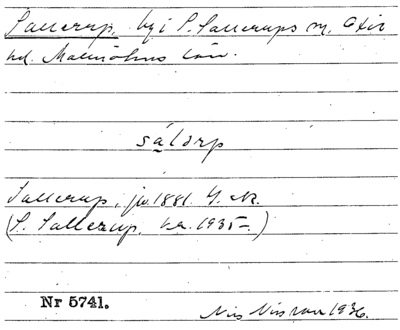 Sallerup, by i S. Sallerups sn, Oxie
hd. Malmöhus län.
sálərp
Sallerup, jvst 1881. G.K.
(S. Sallerup, ka. 1935.)
Nr 5741.
Nils Nilsson 1936.